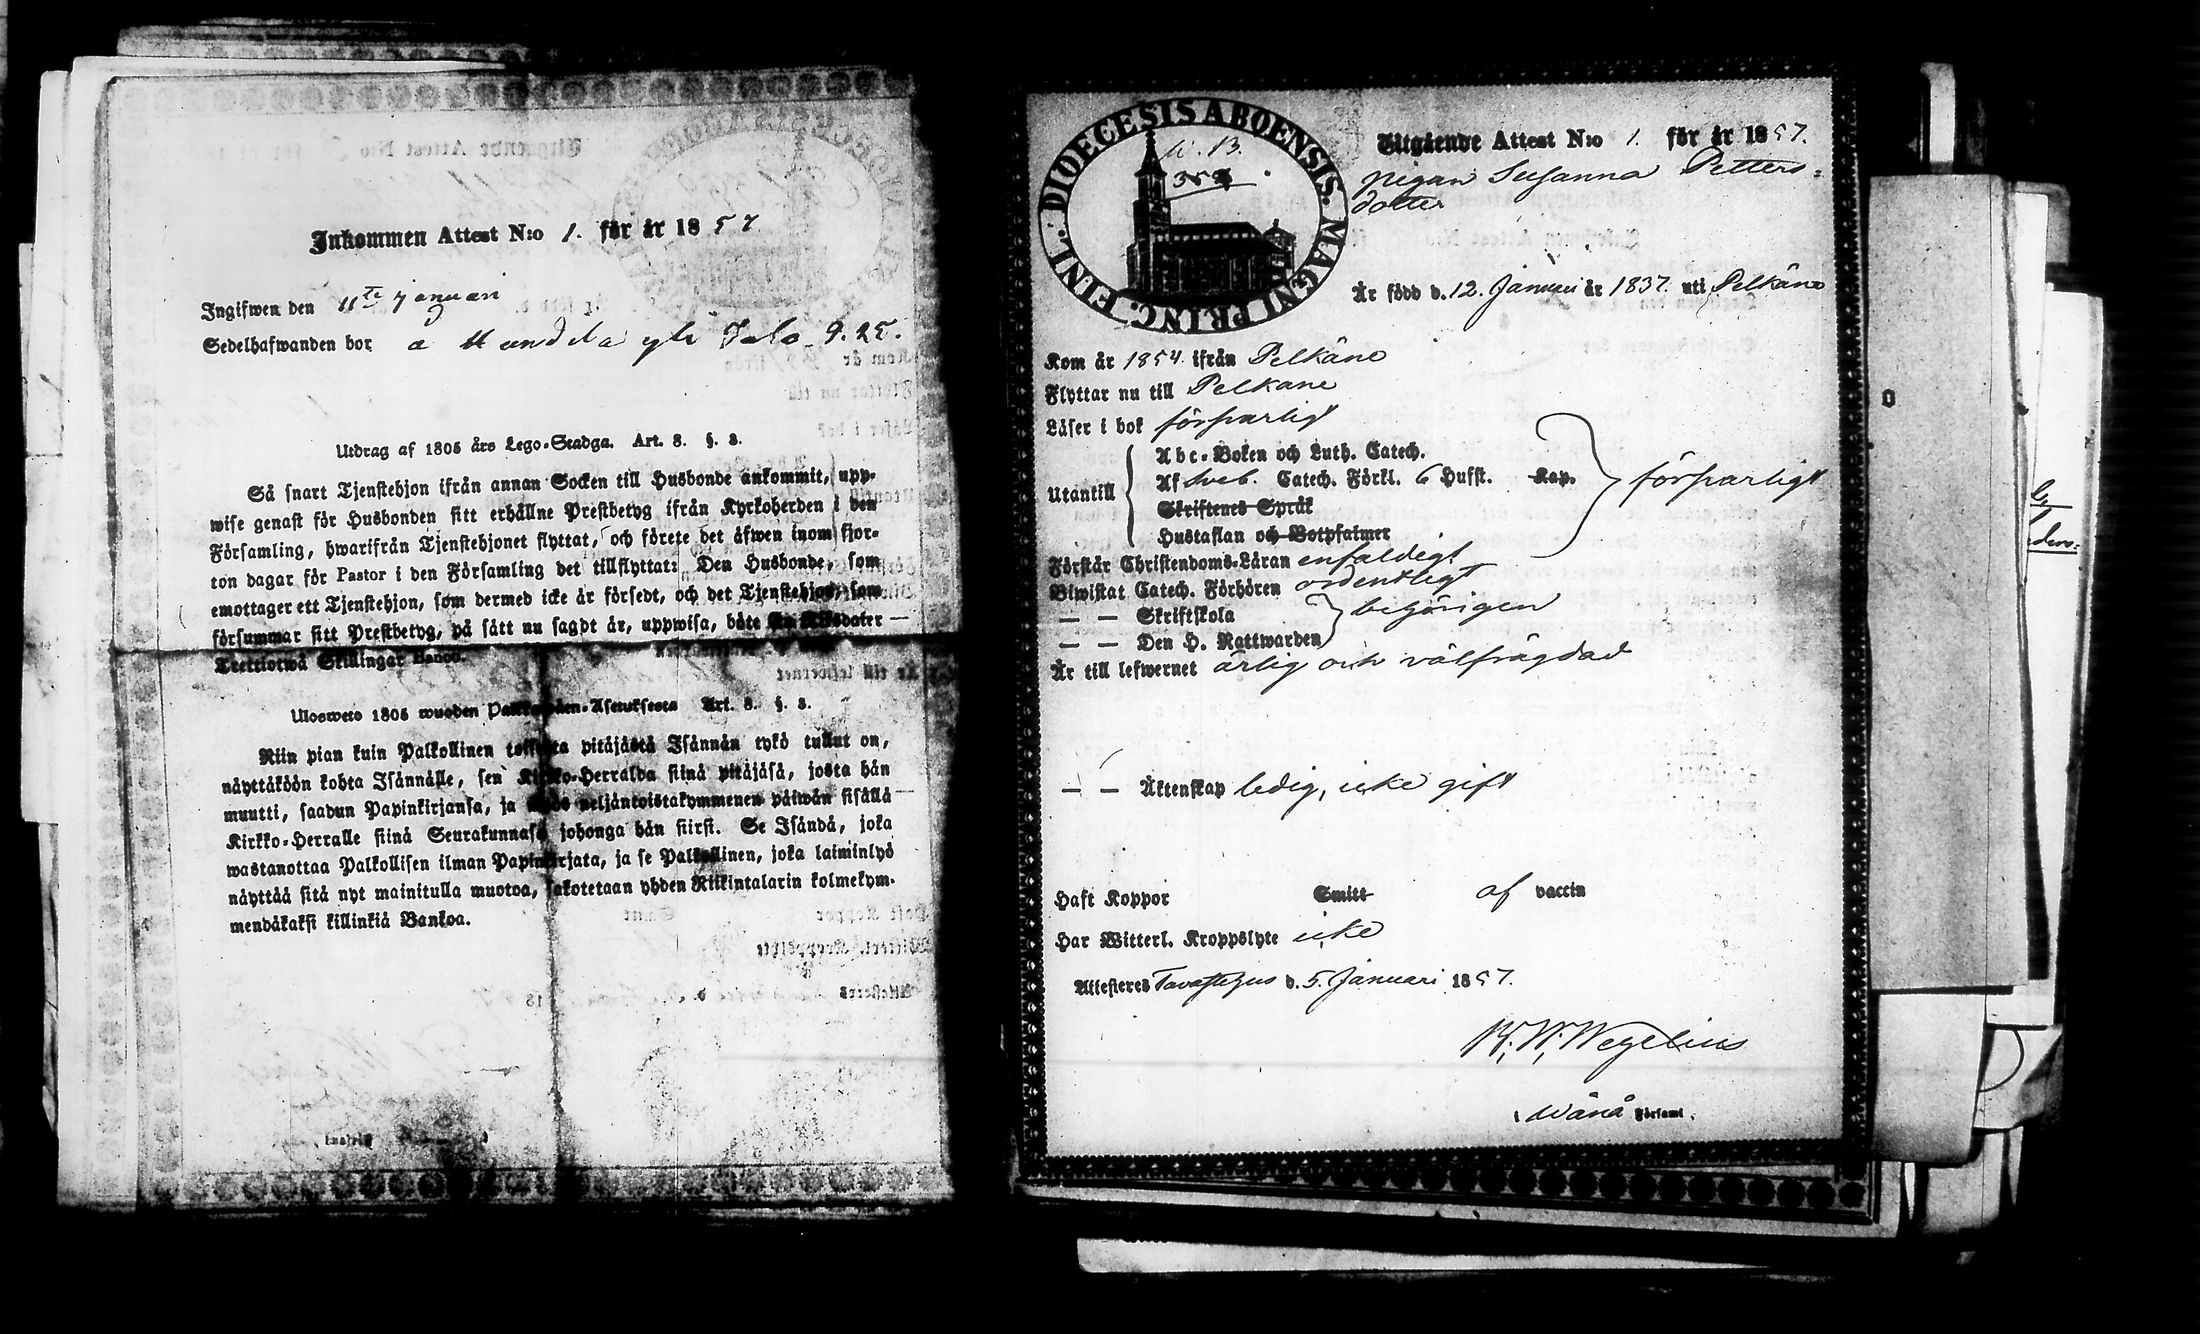 Inkommen Attest N:o 1. för år 1857
Ingifwen den 11te Januari
Sedelhafwanden bor a
Utdrag af 1805 års Lego-Stadga. Art. 8. §. 3.
Så snart Tjenstehjon ifrån annan Socken till Husbonde ankommit, upp-
wise genast för Husbonden sitt erhållne Prestbetyg ifrån Kyrkoherden i den
Församling, hwarifrån Tjenstehjonet flyttat, och förete det äfwen inom fjor-
ton dagar för Pastor i den Församling det tillflyttat: Den Husbonde, som
emottager ett Tjenstehjon, som dermed icke är försedt, och det Tjenstehjon, som
försummar sitt Prestbetyg, på sätt nu sagdt är, uppwisa, böte
Trettiotwå Skillingar Banco.
Ulosweto 1805 wuoden Palkollisten-Asetuksesta Art. 8. §. 3.
Niin pian kuin Palkollinen toisesta pitäjästä Isännän tykö tullut on,
näyttäköön kohta Isännälle, sen Kirkko-Herralda siinä pitäjäsä, josta hän
muutti, saadun Papinkirjansa, ja myös neljäntoistakymmenen päiwän sisällä
Kirkko-Herralle siinä Seurakunnasa johonga hän siirsi. Se Isändä, joka
wastanottaa Palkollisen ilman Papinkirjata, ja se Palkollinen, joka laiminlyö
näyttää sitä nyt mainitulla muotoa, sakotetaan yhden Riikintalarin kolmekym-
mendäkaksi killinkiä Bankoa.
DIOECESIS ABOENSIS. MAGNI PRINC. FINL.
Utgående Attest N:o 1. för år 1857.
pigan Susanna Petters-
dotter
Är född d. 12. Januari år 1837. uti Pelkäne
Kom år 1854. ifrån Pelkäne
Flyttar nu till Pelkäne
Läser i bok försvarligt
Abc-Boken och Luth. Catech.
Utantill Af Sveb. Catech. Förkl. 6 Hufst. Kap. försvarligt
Skriftenes Språk
Hustaflan och Botpsalmer
Förstår Christendoms-Läran enfaldigt
Biwistat Catech. Förhören ordentligt
— — Skriftskola behörigen
— — Den H. Nattwarden
Är till lefwernet ärlig och välfrägdad
— — Äktenskap ledig, icke gift
Haft Koppor Smitt af vaccin
Har Witterl. Kroppslyte icke
Attesteres Tavastehus d. 5. Januari 1857.
Wegelius
i Wånå Församl.